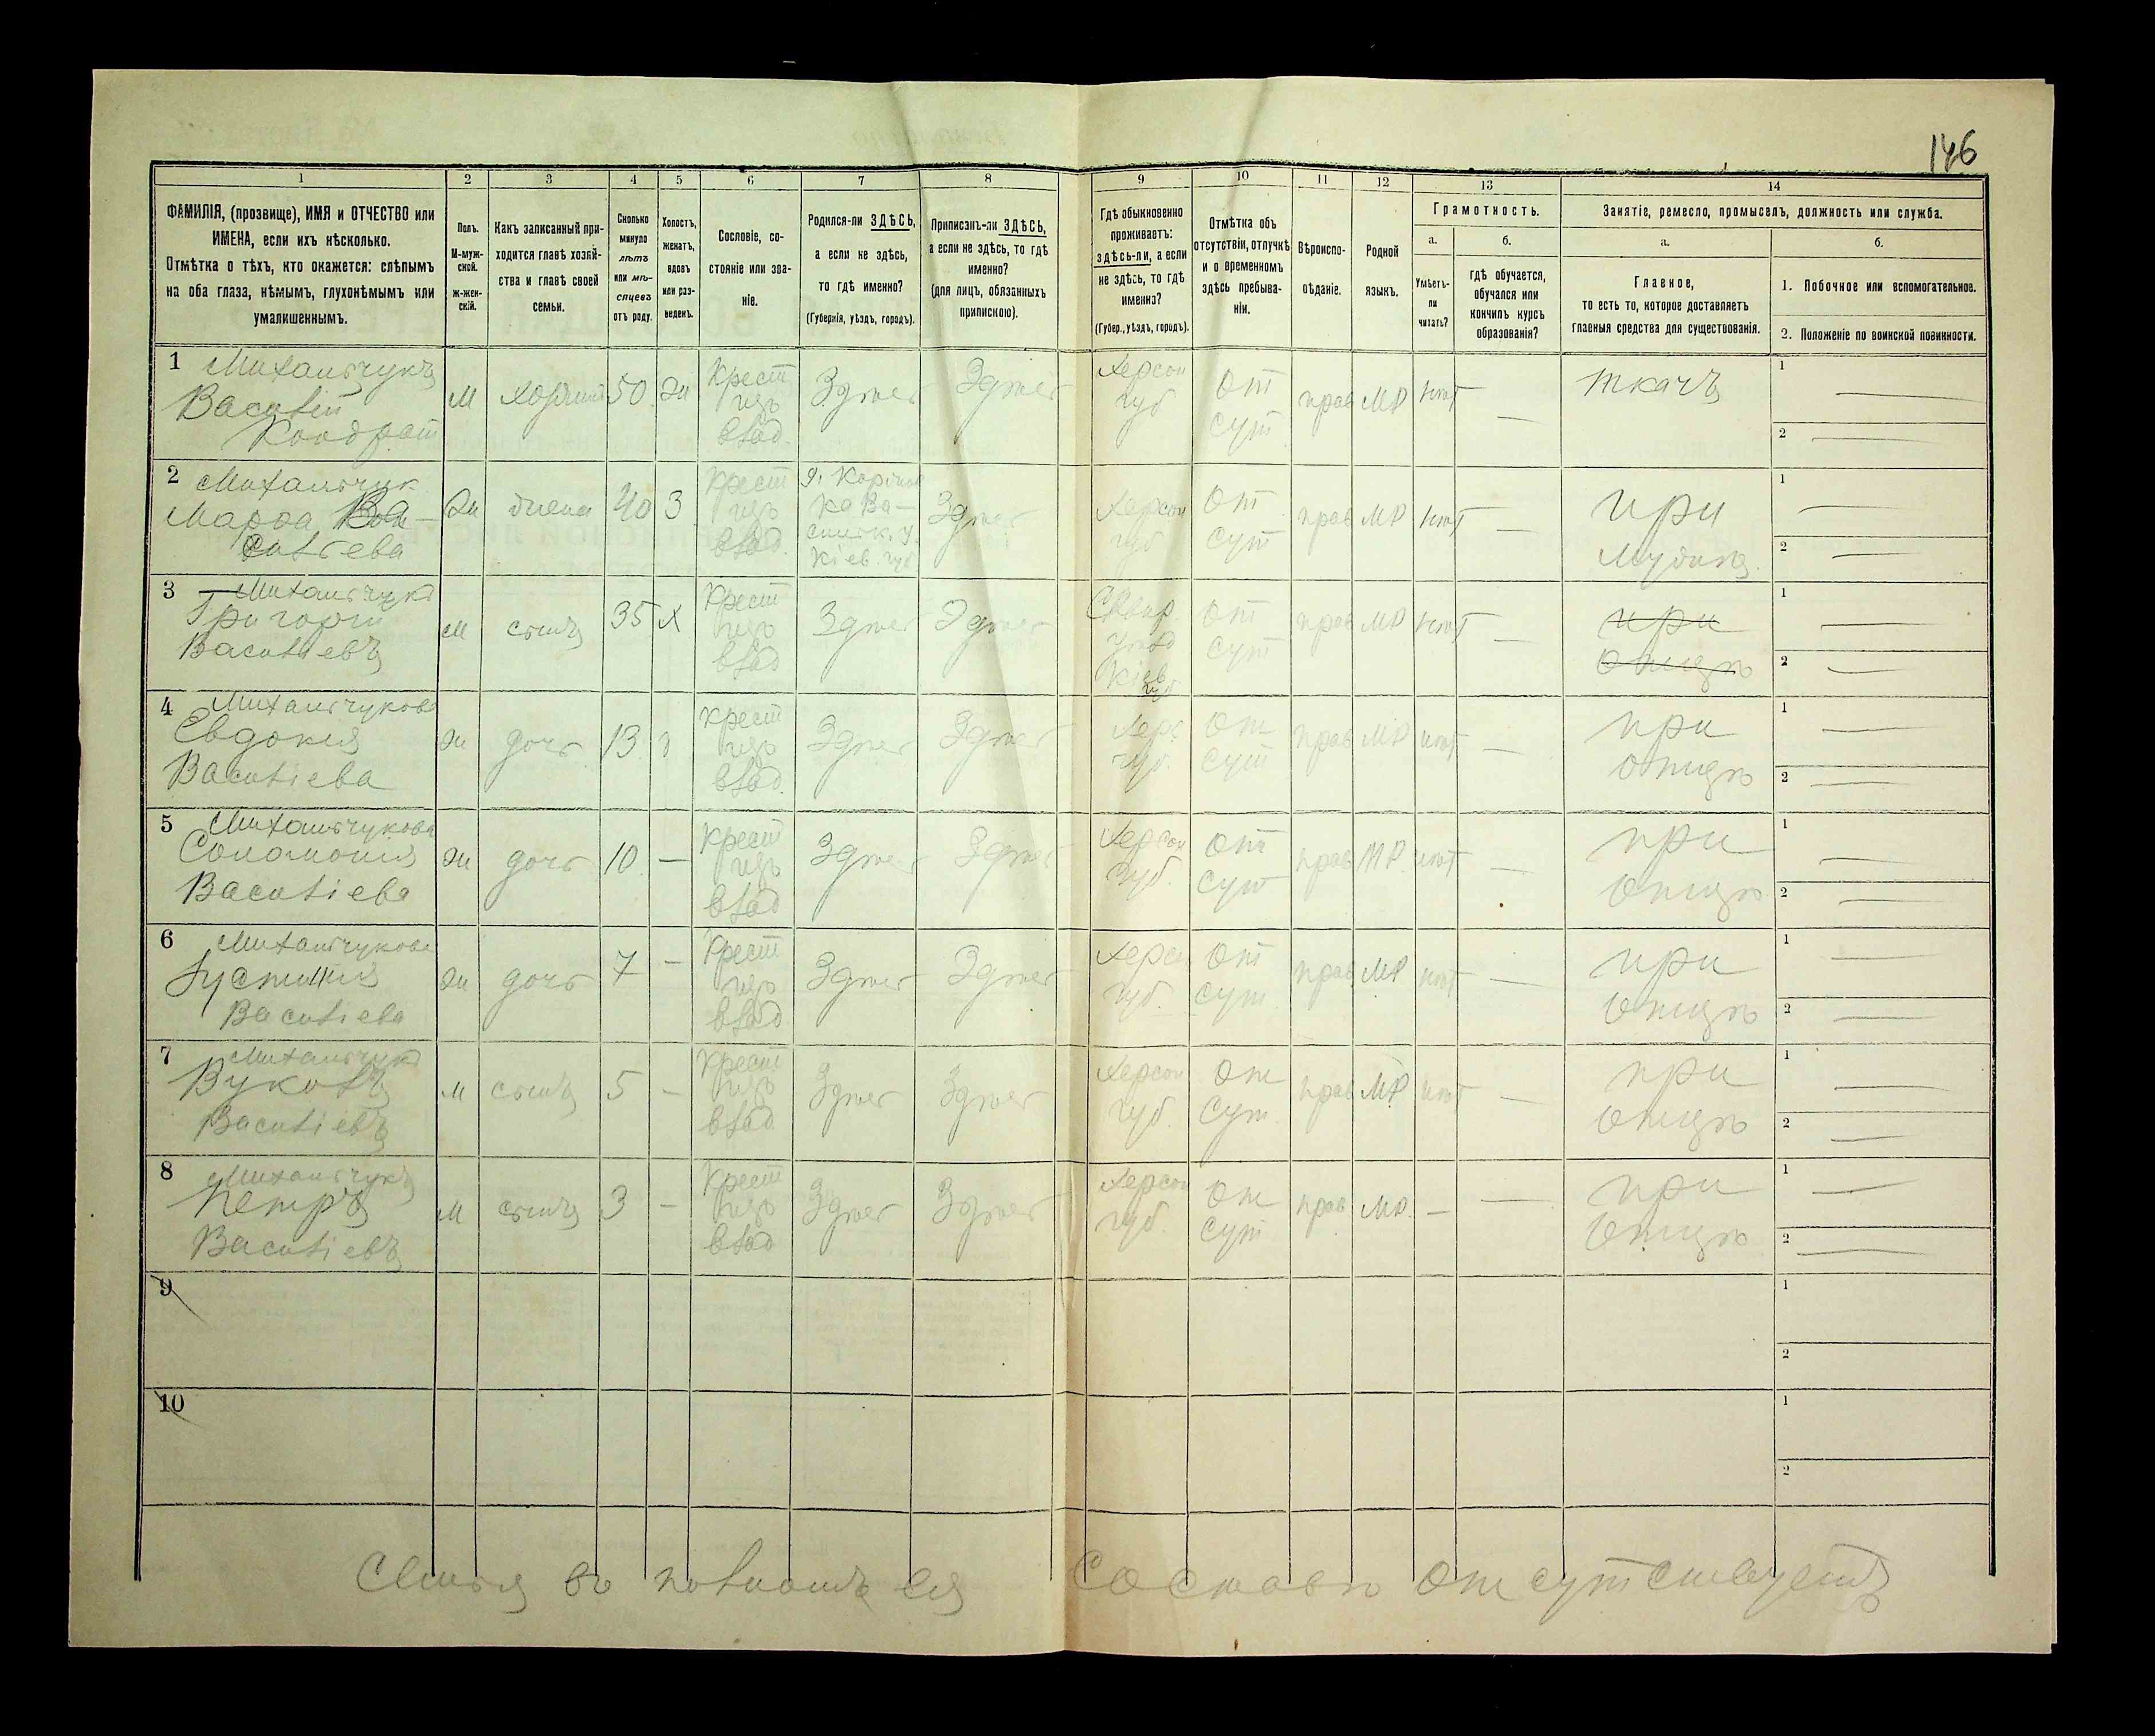 146
1 2 3 4 5 6 7 8 9 10 11 12 13 14
ФАМИЛІЯ, (прозвище), ИМЯ и ОТЧЕСТВО или
ИМЕНА, если ихъ нѣсколько.
Отмѣтка о тѣхъ, кто окажется: слѣпымъ
на оба глаза, нѣмымъ, глухонѣмымъ или
умалишеннымъ.
Полъ.
М-муж-
ской.
ж-жен-
скій.
Какъ записанный при-
ходится главѣ хозяй-
ства и главѣ своей
семьи.
Сколько
минуло
лѣтъ
или мѣ-
сяцевъ
отъ роду.
Холостъ,
женатъ,
вдовъ
или раз-
веденъ.
Сословіе, со-
стояніе или зва-
ніе.
Родился-ли ЗДѢСЬ,
а если не здѣсь,
то гдѣ именно?
(Губернія, уѣздъ, городъ).
Приписанъ-ли ЗДѢСЬ,
а если не здѣсь, то гдѣ
именно?
(для лицъ, обязанныхъ
припискою).
Гдѣ обыкновенно
проживаетъ:
здѣсь-ли, а если
не здѣсь, то гдѣ
именно?
(Губер., уѣздъ, городъ).
Отмѣтка объ
отсутствіи, отлучкѣ
и о временномъ
здѣсь пребыва-
ніи.
Вѣроиспо-
вѣданіе.
Родной
языкъ.
Грамотность.
а.
Умѣетъ-
ли
читать?
б.
гдѣ обучается,
обучался или
кончилъ курсъ
образованія?
Занятіе, ремесло, промыселъ, должность или служба.
а.
Главное,
то есть то, которое доставляетъ
главныя средства для существованія.
б.
1. Побочное или вспомогательное.
2. Положеніе по воинской повинности.
1 Михальчукъ
Василій
Кондрат
м
50
Крест
изъ
влад.
Здѣсь
Здѣсь
Херсон
губ
От
сут
прав
МР
нѣт
—
ткачъ
1 —
2 —
2 Михальчук
Марфа
сильева
жена
40
З
Крест
изъ
влад.
Кіев. губ
Здѣсь
Херсон
губ
От
сут
прав
МР
нѣт
—
при
мужѣ
1 —
2 —
3 Михальчукъ
Григорій
Васильевъ
м
сынъ
35
Х
Крест
изъ
влад
Здѣсь
Здѣсь
Сквир
уѣзд
Кіев
губ
От
сут
прав
МР
нѣт
—
при
отцѣ
1 —
2 —
4 Михальчукова
Евдокия
Васильева
ж
дочь
13
крест
изъ
влад.
Здѣсь
Здѣсь
Херс
губ.
От
сут
прав
МР
нѣт
—
при
отцѣ
1 —
2 —
5 Михальчукова
Соломония
Васильева
ж
дочь
10
—
Крест
изъ
влад
Здѣсь
Здѣсь
Херсон
губ.
От
сут
прав
МР.
нѣт
—
при
отцѣ
1 —
2 —
6 Михальчукова
Іустинія
Васильева
ж
дочь
7
—
Крест
изъ
влад
Здѣсь
Здѣсь
Херсн
губ.
От
сут
прав
МР
нѣт
—
при
отцѣ
1 —
2 —
7 Михальчукъ
Вуколъ
Васильевъ
м
сынъ
5
—
Крест
изъ
влад
Здѣсь
Здѣсь
Херсон
губ.
От
сут.
прав
МР
нѣт
—
при
отцѣ
1 —
2 —
8 Михальчукъ
Петръ
Васильевъ
м
сынъ
3
—
Крест
изъ
влад
Здѣсь
Здѣсь
Херсон
губ.
От
сут
прав
МР.
—
—
при
отцѣ
1 —
2 —
9
1
2
10
1
2
Семья во полномъ ея составѣ отсутствуетъ